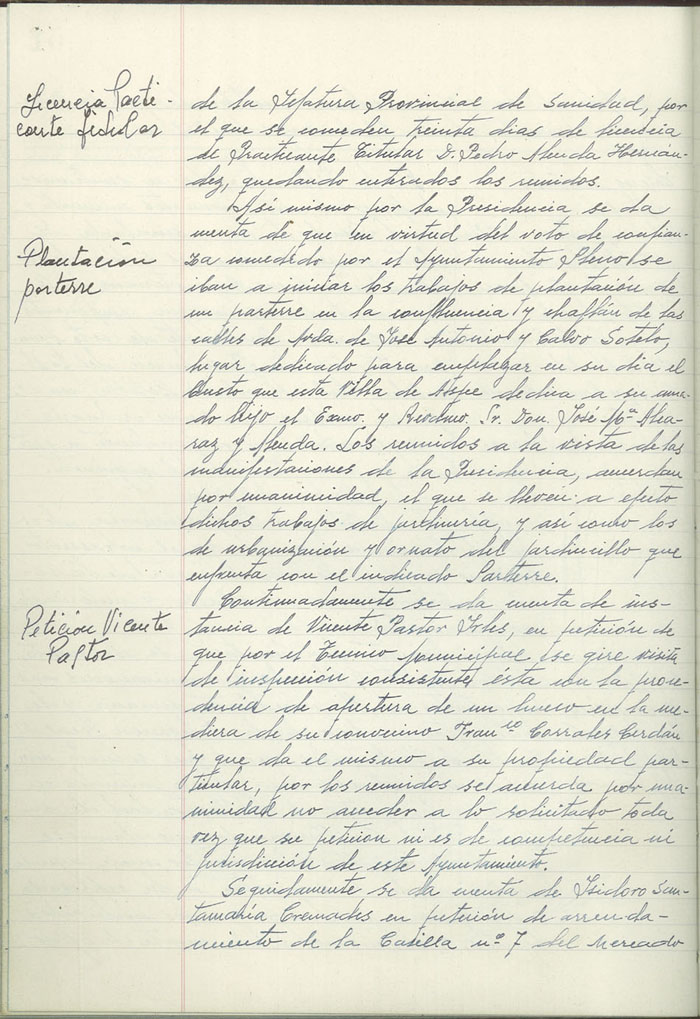 Licencia Practi-
cante titular
de la Jefatura Provincial de Sanidad, por
el que se conceden treinta dias de licencia
al Practicante Titular D. Pedro Alenda Hernán-
dez, quedando enterados los reunidos.
Plantación
parterre
Así mismo por la Presidencia se da
cuenta de que en virtud del voto de confian-
za concedido por el Ayuntamiento Pleno se
iban a iniciar los trabajos de plantación de
un parterre en la confluencia y chaflán de las
calles de Avda. de José Antonio y Calvo Sotelo,
lugar dedicado para emplazar en su dia el
Busto que esta Villa de Aspe dedica a su ama-
do hijo el Excmo. y Rvdmo. Sr. Don. José Mª Alca-
raz y Alenda. Los reunidos a la vista de las
manifestaciones de la Presidencia, acuerdan
por unanimidad, el que se lleven a efecto
dichos trabajos de jardinería, y así como los
de urbanización y ornato del jardincillo que
enfrenta con el indicado Parterre.
Petición Vicente
Pastor
Continuadamente se da cuenta de ins-
tancia de Vicente Pastor Irles, en petición de
que por el Tecnico Municipal se gire visita
de inspección consistente esta con la proce-
dencia de apertura de un hueco en la me-
diera de su convecino Franco Corrales Cerdán
y que da el mismo a su propiedad par-
ticular, por los reunidos se acuerda por una-
nimidad no acceder a lo solicitado toda
vez que su peticion ni es de competencia ni
jurisdicción de este Ayuntamiento.
Seguidamente se da cuenta de Isidoro San-
tamaría Cremades en petición de arrenda-
miento de la Casilla nº 7 del Mercado